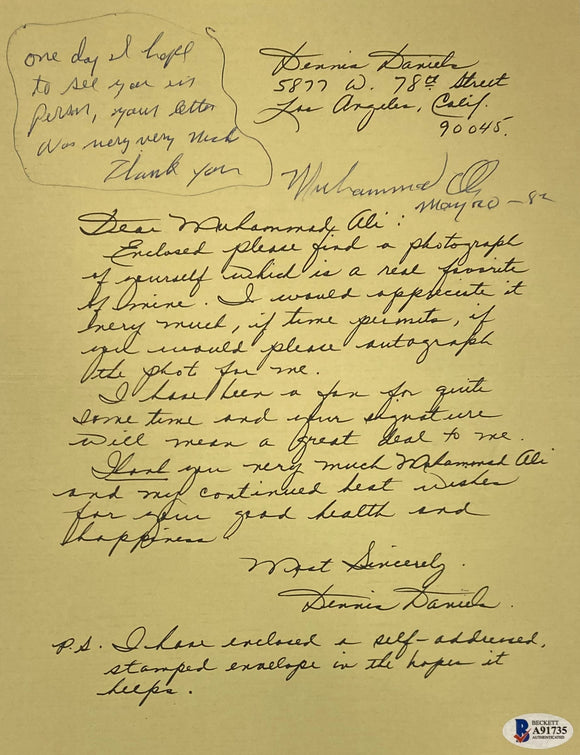 one day I hope
to see you in
person, your letter
was very very much
Thank you
Dennis Daniels
5877 W. 78th Street
Los Angeles, Calif.
90045.
Muhammad Ali
May 20 - 82
Dear Muhammad Ali:
Enclosed please find a photograph
of yourself which is a real favorite
of mine. I would appreciate it
very much, if time permits, if
you would please autograph
the phot for me.
I have been a fan for quite
some time and your signature
will mean a great deal to me.
Thank you very much Muhammad Ali
and my continued best wishes
for your good health and
happiness
Most Sincerely.
Dennis Daniels.
P.S. I have enclosed a self-addressed,
stamped envelope in the hopes it
helps.
BECKETT
A91735
AUTHENTICATED